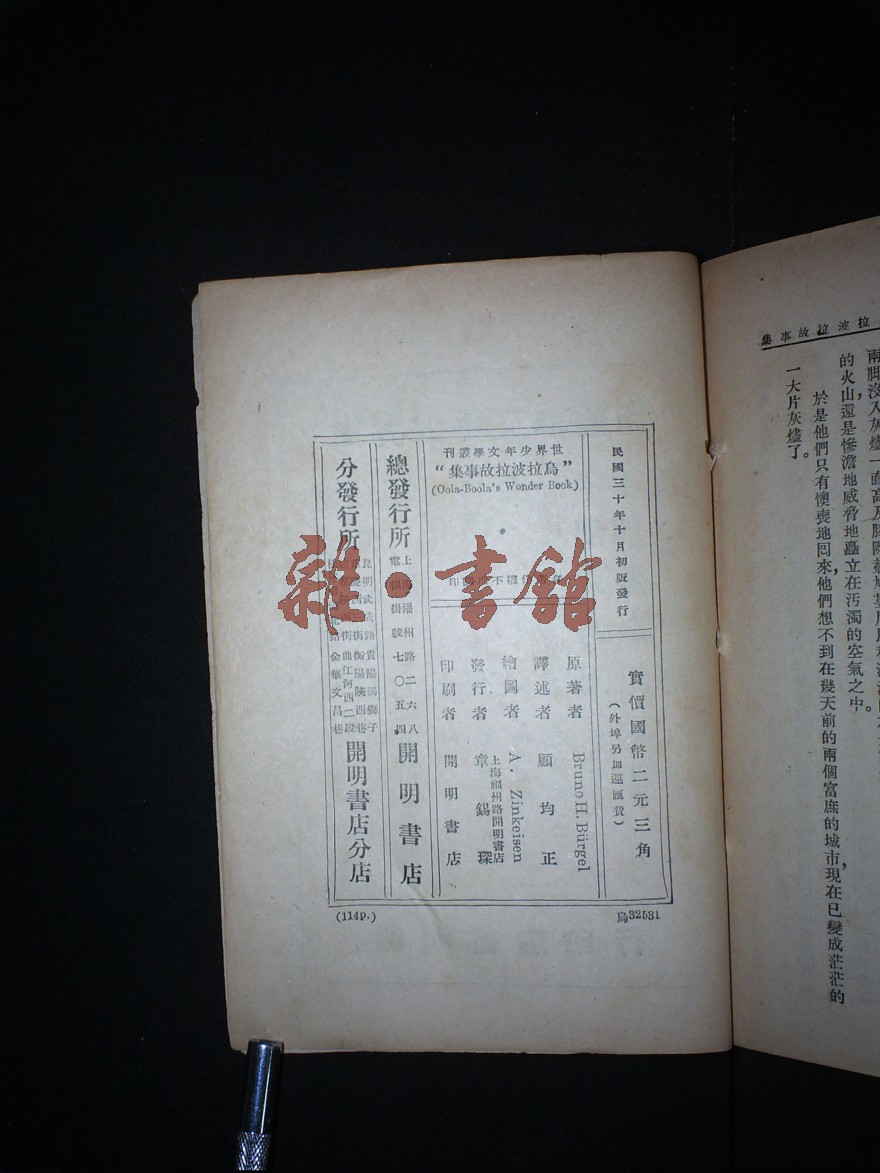 拉波拉故事集
兩脚沒入灰燼一面高及
的火山，還是慘澹地威脅地矗立在汚濁的空氣之中。
於是他們只有懊喪地囘來，他們想不到在幾天前的兩個富庶的城市，現在已變成茫茫的
一大片灰燼了。
民國三十年十月初版發行
實價國幣二元三角
（外埠另加運匯費）
世界少年文學叢刊
“烏拉波拉故事集”
(Oola-Boola's Wonder Book)
原著者 Bruno H. Bürgel
譯述者 顧均正
繪圖者 A. Zinkeisen
發行者 上海福州路開明書店 章錫琛
印刷者 開明書店
總發行所 上海福州路二六八 電報掛號七〇五四 開明書店
分發行所 開明書店分店
烏32531
(114P.)
雜·書館